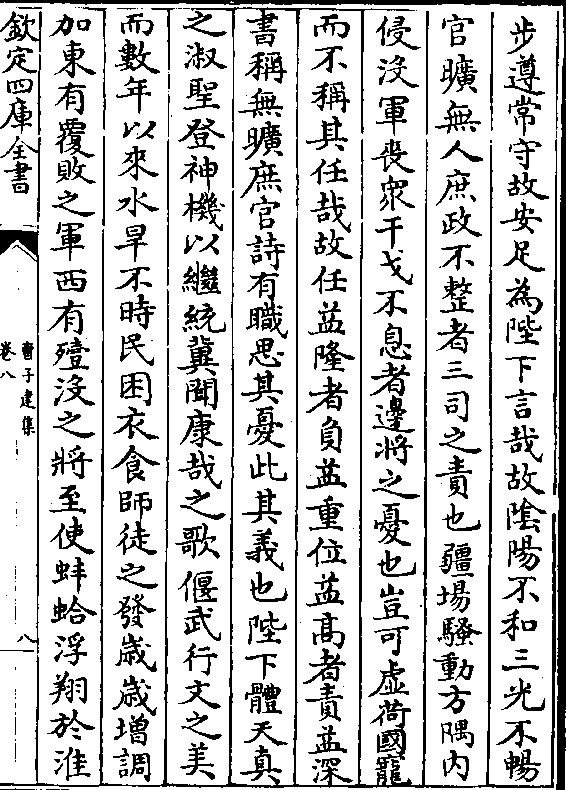 步遵常守故安足為陛下言哉故隂陽不和三光不暢
官曠無人庶政不整者三司之責也疆埸騷動方隅内
侵没軍喪衆干戈不息者邊將之憂也豈可虚荷國寵
而不稱其任哉故任益隆者負益重位益髙者責益深
書稱無曠庶官詩有職思其憂此其義也陛下體天真
之淑聖登神機以繼統冀聞康哉之歌偃武行文之美
而數年以來水旱不時民困衣食師徒之發歳歳增調
加東有覆敗之軍西有殪没之將至使蚌蛤浮翔於淮
欽定四庫全書
曹子建集
卷八
八